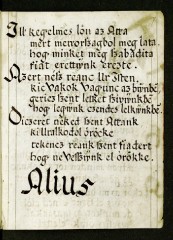 Ily kegelmes lön az Atta
mert menyorszagbol meg lata
hog minket meg ßabadita
fiat erettünk ereszte.
Azert nefs reanc Ur Isten,
kic vakok vagyunc az bünbe
geriesz ßent lelket ßivünkbe
hog lepiunk csendes lelkünkbe.
Dicseret neked ßent Attank
ki Uralkodol öröcke
tekencz reank ßent fiadert
hog ne veßßünk el örökke.
Alius